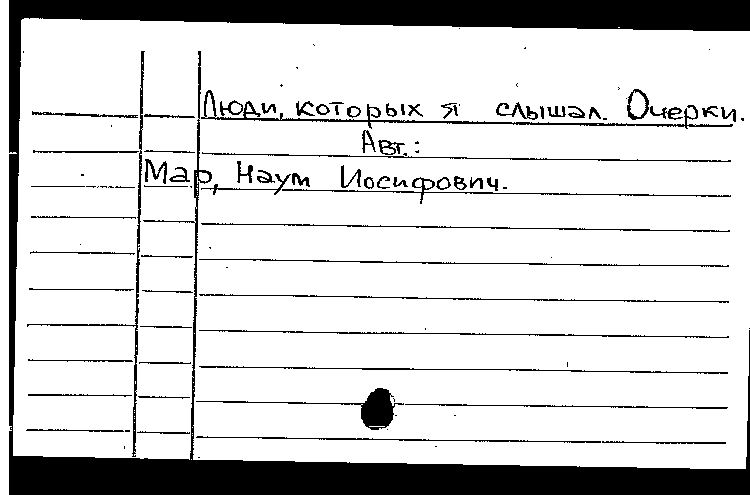 Люди, которых я слышал. Очерки.
Авт.:
Мар, Наум Иосифович.